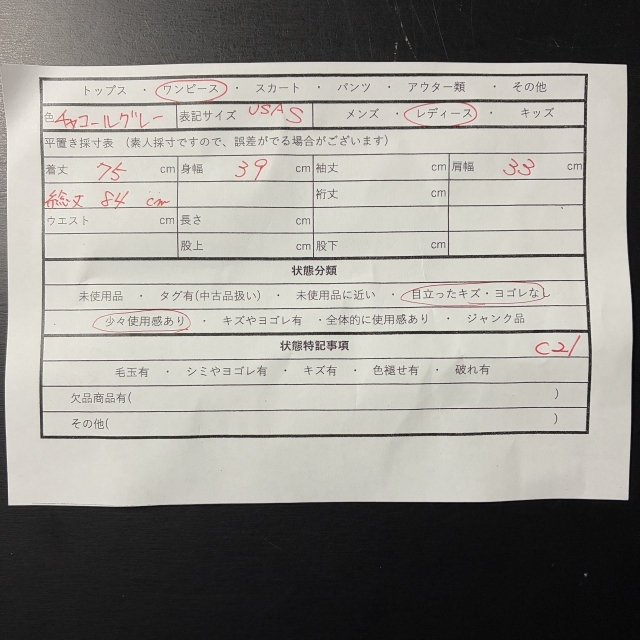 トップス ・ ワンピース ・ スカート ・ パンツ ・ アウター類 ・ その他
色 チャコールグレー 表記サイズ USA S メンズ ・ レディース ・ キッズ
平置き採寸表 （素人採寸ですので、誤差がでる場合がございます）
着丈 75 cm 身幅 39 cm 袖丈 cm 肩幅 33 cm
総丈 84 cm 裄丈 cm
ウエスト cm 長さ cm
股上 cm 股下 cm
状態分類
未使用品 ・ タグ有(中古品扱い) ・ 未使用品に近い ・ 目立ったキズ・ヨゴレなし
少々使用感あり ・ キズやヨゴレ有 ・全体的に使用感あり ・ ジャンク品
状態特記事項 C21
毛玉有 ・ シミやヨゴレ有 ・ キズ有 ・ 色褪せ有 ・ 破れ有
欠品商品有( )
その他( )